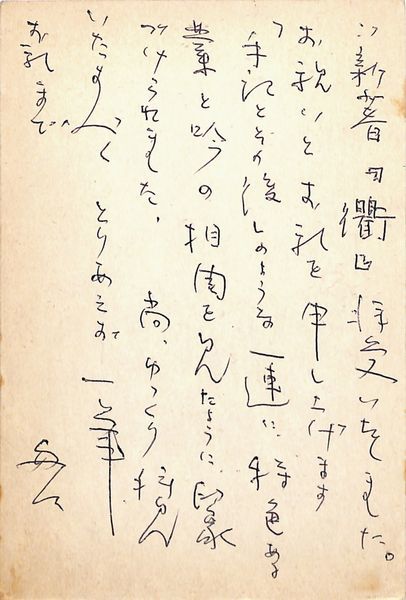 新著 衢 拝受いたしました。
お祝いとお礼を申し上げます
手記とその後 のような一連に、特色ある
と吟の相関を見たように、印象
づけられました。尚、ゆっくり拝見
いたすべく とりあえず 一筆
お礼まで